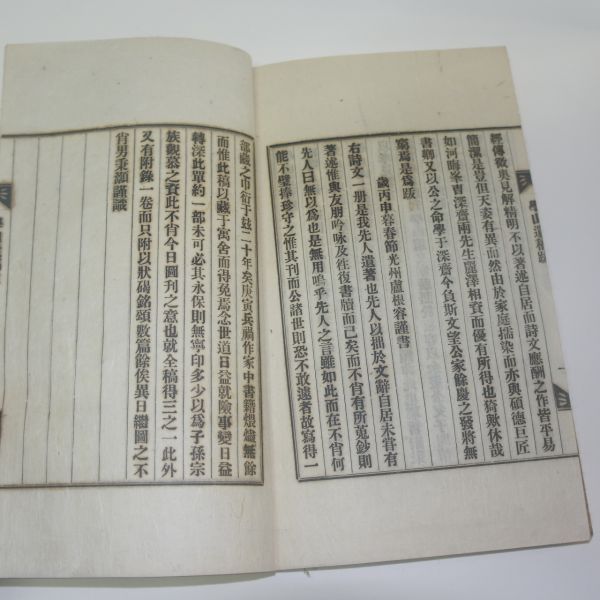 經傳微奧見解精明不以著述自居而詩文應酬之作皆平易
簡潔是豈但天姿有異而然由於家庭擩染而亦與碩德巨匠
如河晦峯曺深齋兩先生麗澤相資而優有所得也猗歟休哉
書卿又以公之命學于深齋今負斯文望公家餘慶之發將無
窮焉是爲跋
歲丙申暮春節光州盧根容謹書
右詩文一册是我先人遺著也先人以拙於文辭自居未甞有
著述惟與友朋吟咏及徃復書牘而已矣而不肖有所蒐鈔則
先人曰無以爲也是無用嗚乎先人之言雖如此而在不肖何
能不璧捧珍守之惟其刊而公諸世則恐不敢遠者故寫得一
部藏之巾衍于玆二十年矣庚寅兵禍作家中書籍煨燼無餘
而惟此稿以藏于寓舍而得免焉念世道日益就險事變日益
轉深此單約一部未可必其永保則無寧印多少以爲子孫宗
族觀慕之資此不肖今日圖刊之意也就全稿得三之一此外
又有附錄一卷而只附以狀碣銘頌數篇餘俟異日繼圖之不
肖男秉灝謹識
學山遺稿跋